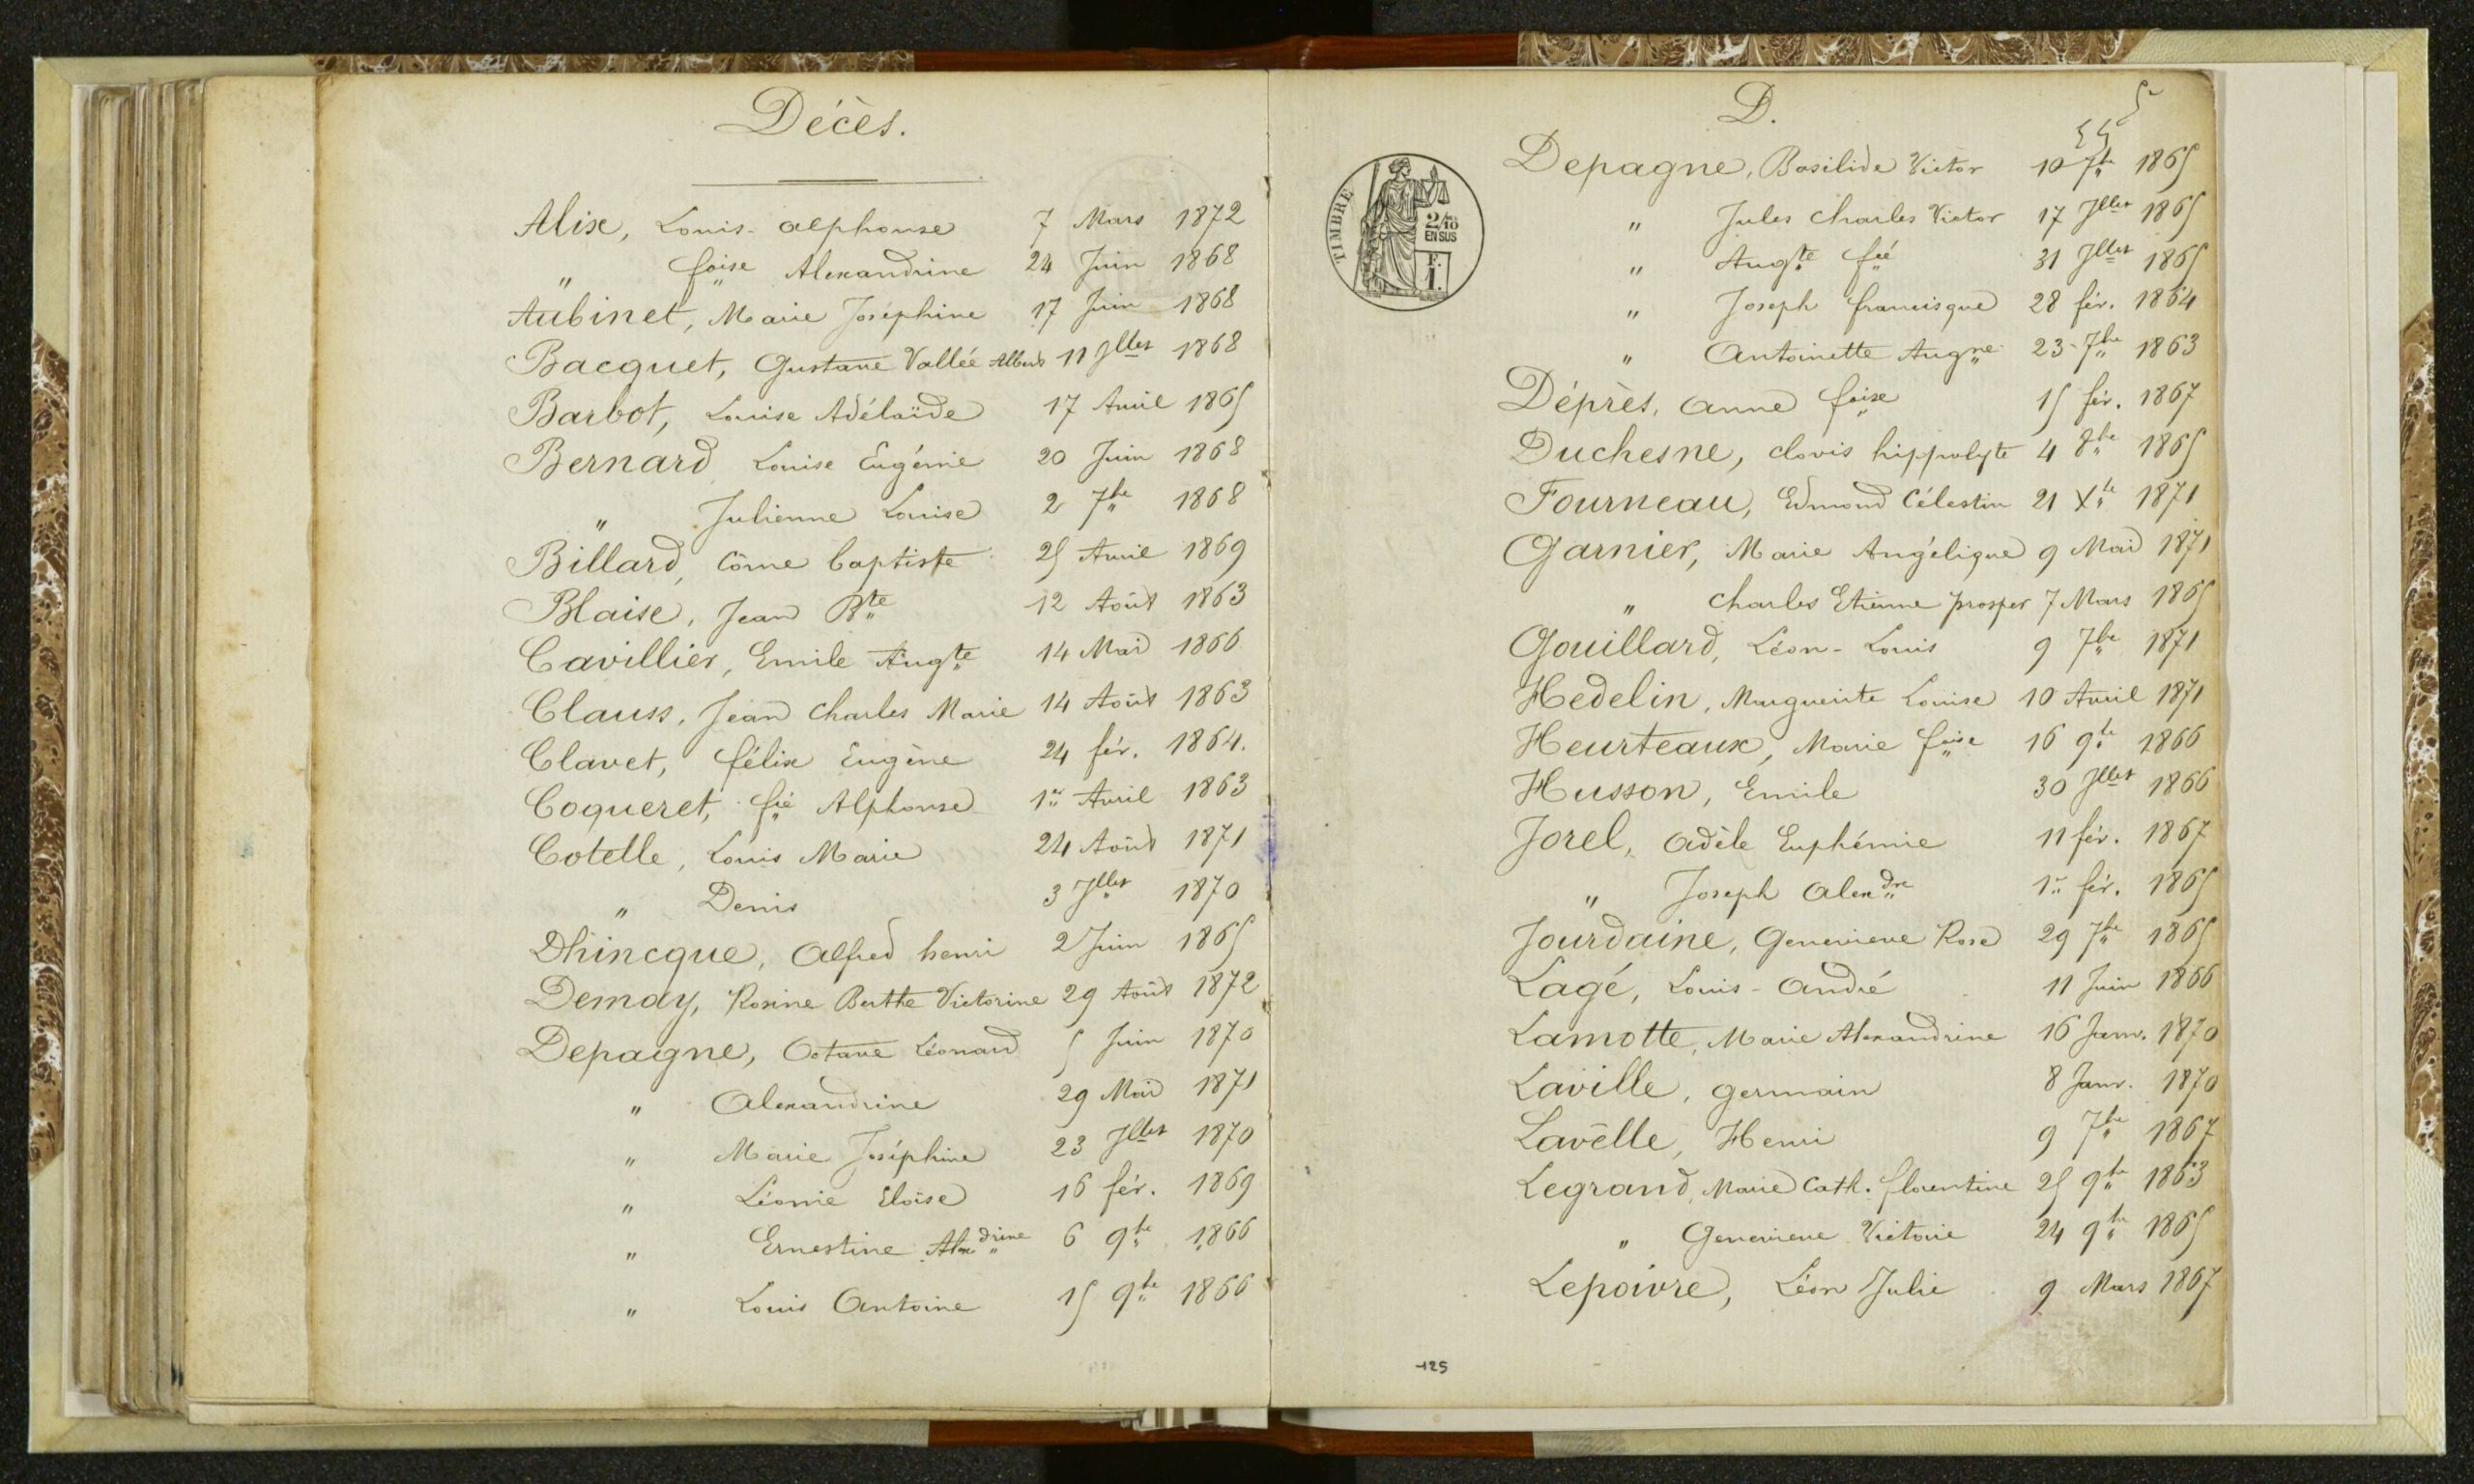 Décès.
Alix, Louis-alphonse 7 Mars 1872
" foise Alexandrine 24 Juin 1868
Aubinet, Marie Joséphine 17 Juin 1868
Bacquet, Gustave Vallée Albert 11 Jllet 1868
Barbot, Louise Adélaïde 17 Avril 1865
Bernard Louise Eugénie 20 Juin 1868
" Julienne Louise 2 7bre 1868
Billard, Côme baptiste 25 Avril 1869
Blaise, Jean Bte 12 Août 1863
Cavillier, Emile Augte 14 Mai 1866
Clauss, Jean Charles Marie 14 Août 1863
Clavet, félix Eugène 24 fév. 1864.
Coqueret, fié Alphonse 1er Avril 1863
Cotelle, Louis Marie 24 Août 1871
" Denis 3 Jllet 1870
Dhincque, Alfred henri 2 Juin 1865
Demay, Rosine Berthe Victorine 29 Août 1872
Depagne, Octave Léonard 5 Juin 1870
" Alexandrine 29 Mai 1871
" Marie Joséphine 23 Jllet 1870
" Léonie Eloïse 16 fév. 1869
" Ernestine Alexdrine 6 9bre 1866
" Louis Antoine 15 9bre 1866
D.
TIMBRE
2/10
EN SUS
F.
1.
Depagne, Basilide Victor 10 7bre 1865
" Jules Charles Victor 17 Jllet 1865
" Augte fié 31 Jllet 1865
" Joseph francisque 28 fév. 1864
" Antoinette Augne 23 7bre 1863
Déprès, Anne foise 15 fév. 1867
Duchesne, clovis hippolyte 4 8bre 1865
Fourneau, Edmond Célestin 21 Xbre 1871
Garnier, Marie Angélique 9 Mai 1871
" Charles Etienne prosper 7 Mars 1865
Gouillard, Léon-Louis 9 7bre 1871
Hedelin, Marguerite Louise 10 Avril 1871
Heurteaux, Marie foise 16 9bre 1866
Husson, Emile 30 Jllet 1866
Jorel, Adèle Euphémie 11 fév. 1867
" Joseph Alexdre 1er fév. 1865
Jourdaine, Genevieve Rose 29 7bre 1865
Lagé, Louis-André 11 Juin 1866
Lamotte, Marie Alexandrine 16 Janv. 1870
Laville, germain 8 Janv. 1870
Lavelle, Henri 9 7bre 1867
Legrand, Marie Cath. florentine 25 9bre 1863
" Genevieve Victoire 24 9bre 1865
Lepoivre, Léon Julie 9 Mars 1867
125